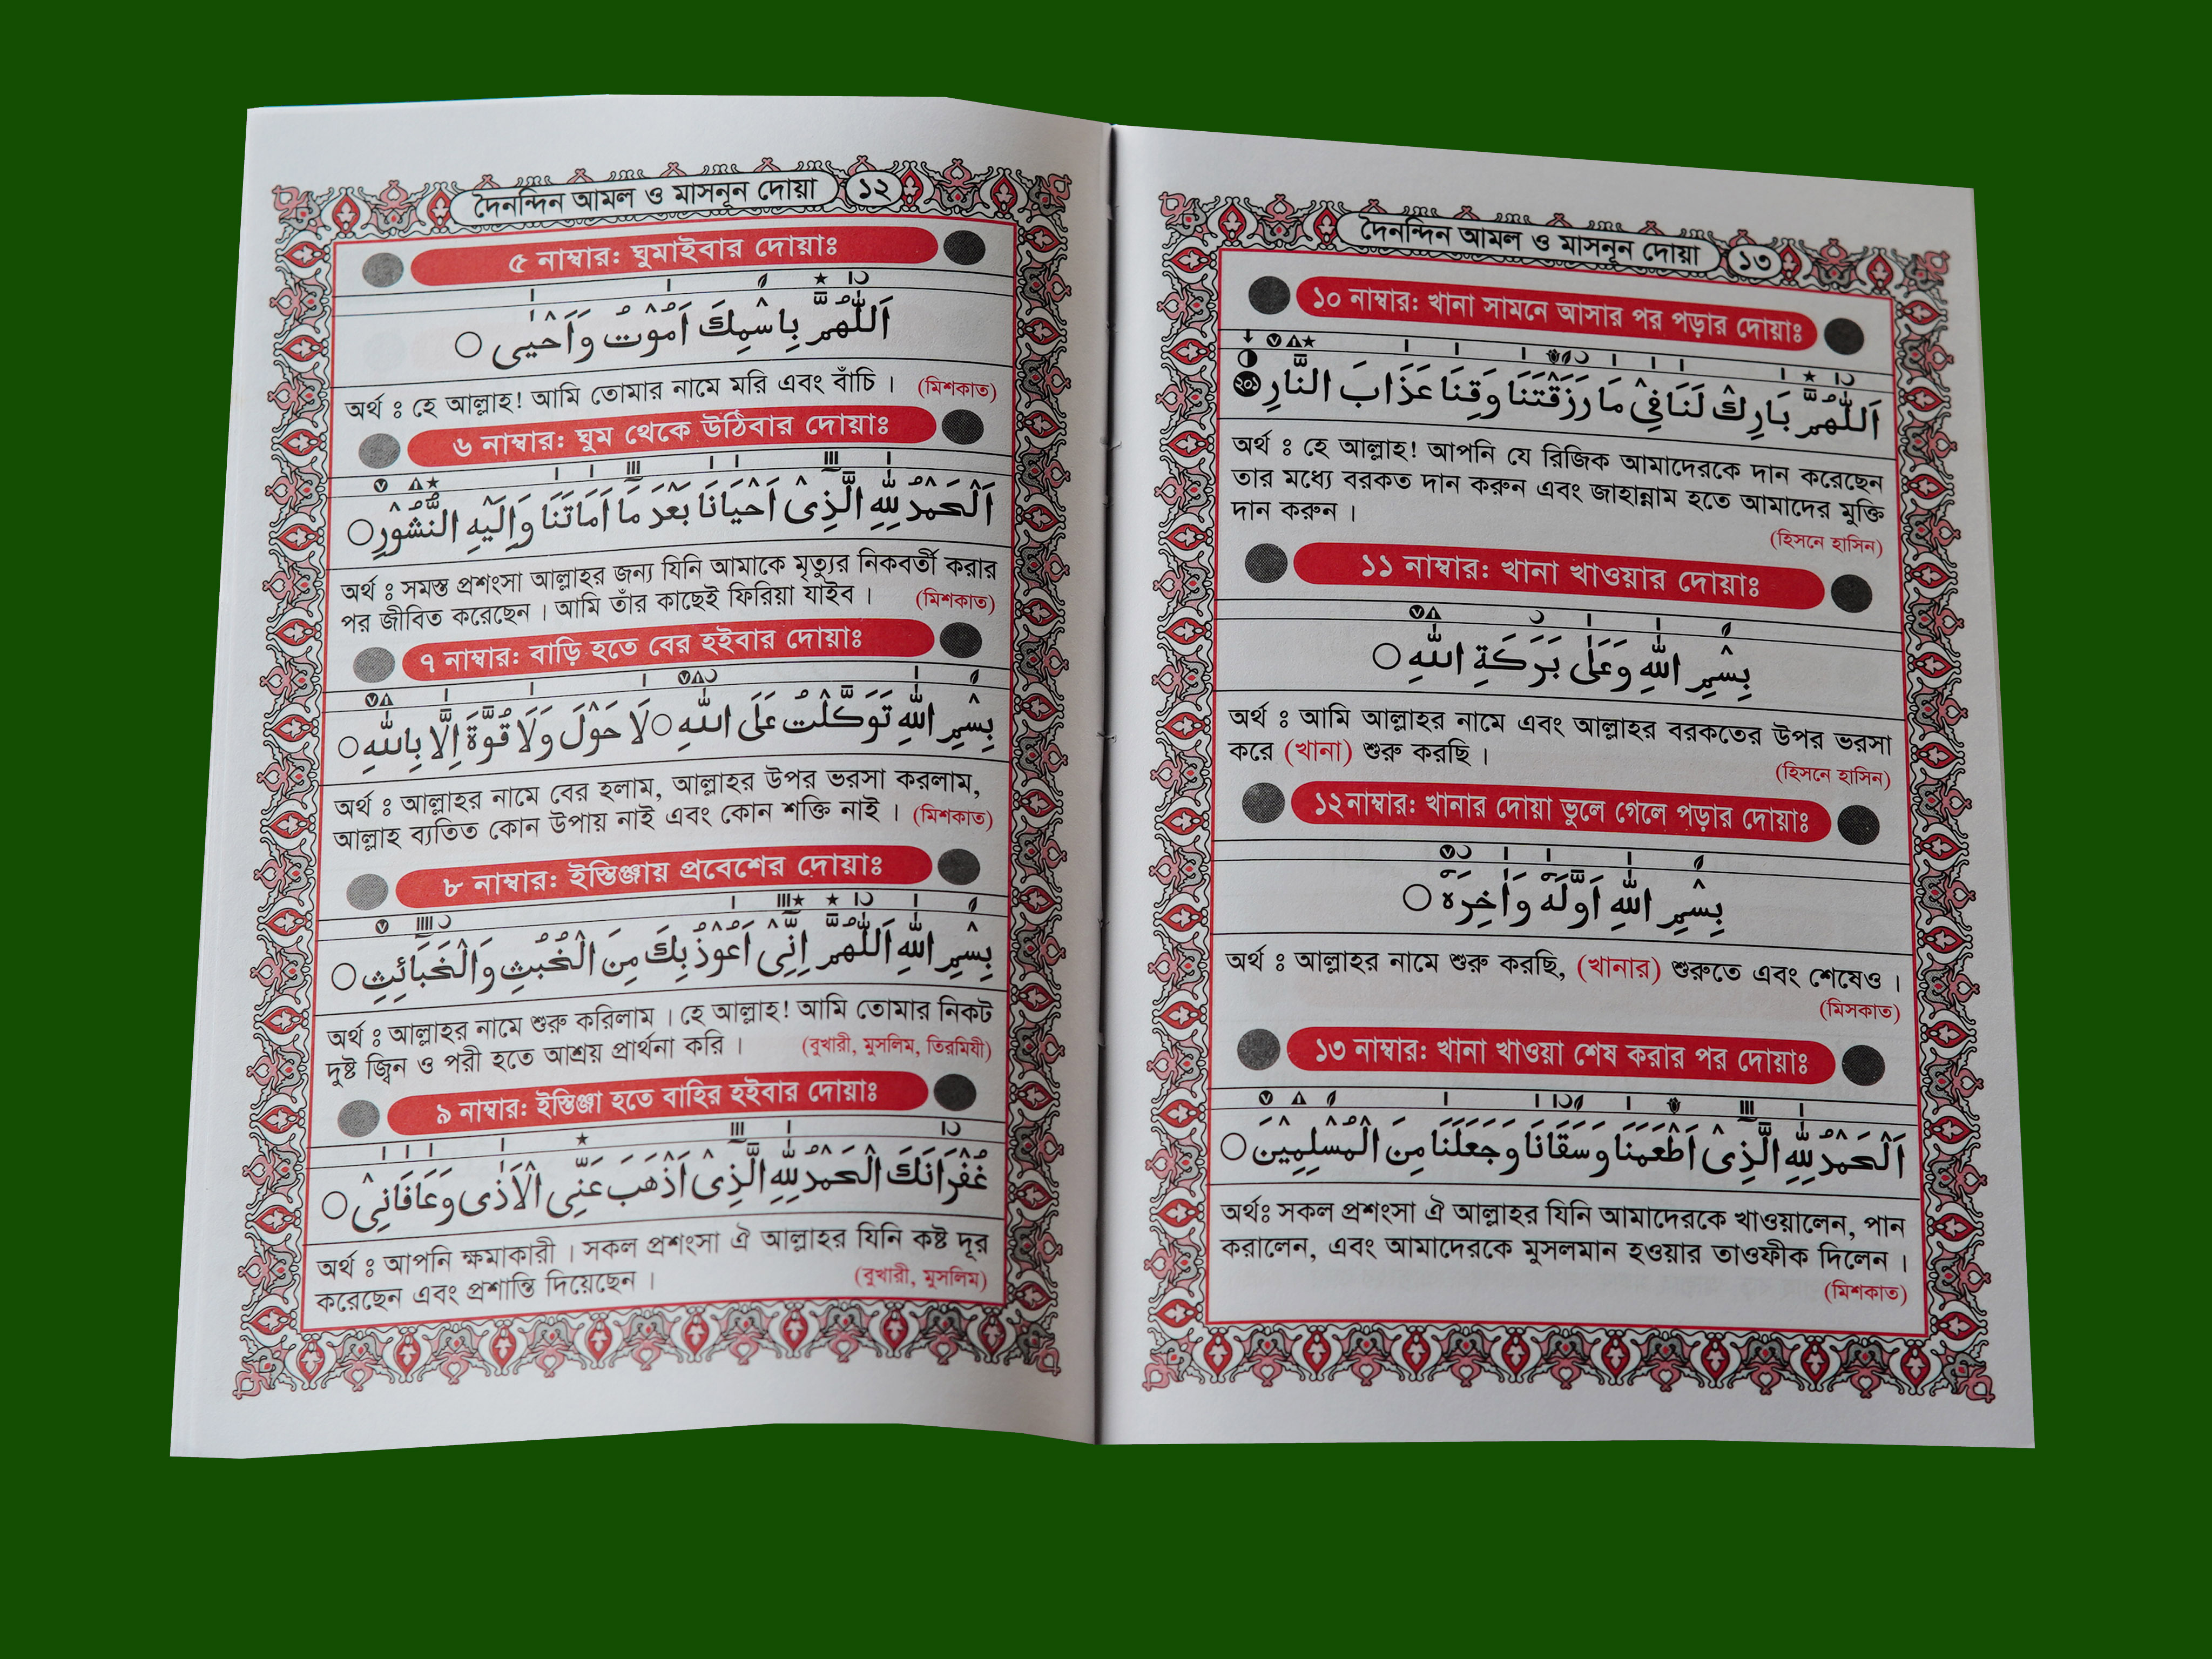 দৈনন্দিন আমল ও মাসনূন দোয়া ১২
৫ নাম্বার: ঘুমাইবার দোয়াঃ
اَللّٰهُمَّ بِاسْمِكَ اَمُوْتُ وَاَحْيٰى
অর্থ ঃ হে আল্লাহ! আমি তোমার নামে মরি এবং বাঁচি । (মিশকাত)
৬ নাম্বার: ঘুম থেকে উঠিবার দোয়াঃ
اَلْحَمْدُ لِلّٰهِ الَّذِىْ اَحْيَانَا بَعْدَ مَا اَمَاتَنَا وَاِلَيْهِ النُّشُوْرِ
অর্থ ঃ সমস্ত প্রশংসা আল্লাহর জন্য যিনি আমাকে মৃত্যুর নিকবর্তী করার
পর জীবিত করেছেন । আমি তাঁর কাছেই ফিরিয়া যাইব । (মিশকাত)
৭ নাম্বার: বাড়ি হতে বের হইবার দোয়াঃ
بِسْمِ اللّٰهِ تَوَكَّلْتُ عَلَى اللّٰهِ ○ لَا حَوْلَ وَلَا قُوَّةَ اِلَّا بِاللّٰهِ
অর্থ ঃ আল্লাহর নামে বের হলাম, আল্লাহর উপর ভরসা করলাম,
আল্লাহ ব্যতিত কোন উপায় নাই এবং কোন শক্তি নাই । (মিশকাত)
৮ নাম্বার: ইস্তিঞ্জায় প্রবেশের দোয়াঃ
بِسْمِ اللّٰهِ اَللّٰهُمَّ اِنِّىْ اَعُوْذُ بِكَ مِنَ الْخُبُثِ وَالْخَبَائِثِ
অর্থ ঃ আল্লাহর নামে শুরু করিলাম । হে আল্লাহ! আমি তোমার নিকট
দুষ্ট জ্বিন ও পরী হতে আশ্রয় প্রার্থনা করি । (বুখারী, মুসলিম, তিরমিযী)
৯ নাম্বার: ইস্তিঞ্জা হতে বাহির হইবার দোয়াঃ
غُفْرَانَكَ الْحَمْدُ لِلّٰهِ الَّذِىْ اَذْهَبَ عَنِّى الْاَذٰى وَعَافَانِىْ
অর্থ ঃ আপনি ক্ষমাকারী । সকল প্রশংসা ঐ আল্লাহর যিনি কষ্ট দূর
করেছেন এবং প্রশান্তি দিয়েছেন । (বুখারী, মুসলিম)
দৈনন্দিন আমল ও মাসনূন দোয়া ১৩
১০ নাম্বার: খানা সামনে আসার পর পড়ার দোয়াঃ
اَللّٰهُمَّ بَارِكْ لَنَا فِىْ مَا رَزَقْتَنَا وَقِنَا عَذَابَ النَّارِ
অর্থ ঃ হে আল্লাহ! আপনি যে রিজিক আমাদেরকে দান করেছেন
তার মধ্যে বরকত দান করুন এবং জাহান্নাম হতে আমাদের মুক্তি
দান করুন ।
(হিসনে হাসিন)
১১ নাম্বার: খানা খাওয়ার দোয়াঃ
بِسْمِ اللّٰهِ وَعَلٰى بَرَكَةِ اللّٰهِ
অর্থ ঃ আমি আল্লাহর নামে এবং আল্লাহর বরকতের উপর ভরসা
করে (খানা) শুরু করছি ।
(হিসনে হাসিন)
১২নাম্বার: খানার দোয়া ভুলে গেলে পড়ার দোয়াঃ
بِسْمِ اللّٰهِ اَوَّلَهٗ وَاٰخِرَهٗ
অর্থ ঃ আল্লাহর নামে শুরু করছি, (খানার) শুরুতে এবং শেষেও ।
(মিসকাত)
১৩ নাম্বার: খানা খাওয়া শেষ করার পর দোয়াঃ
اَلْحَمْدُ لِلّٰهِ الَّذِىْ اَطْعَمَنَا وَسَقَانَا وَجَعَلَنَا مِنَ الْمُسْلِمِيْنَ
অর্থঃ সকল প্রশংসা ঐ আল্লাহর যিনি আমাদেরকে খাওয়ালেন, পান
করালেন, এবং আমাদেরকে মুসলমান হওয়ার তাওফীক দিলেন ।
(মিশকাত)